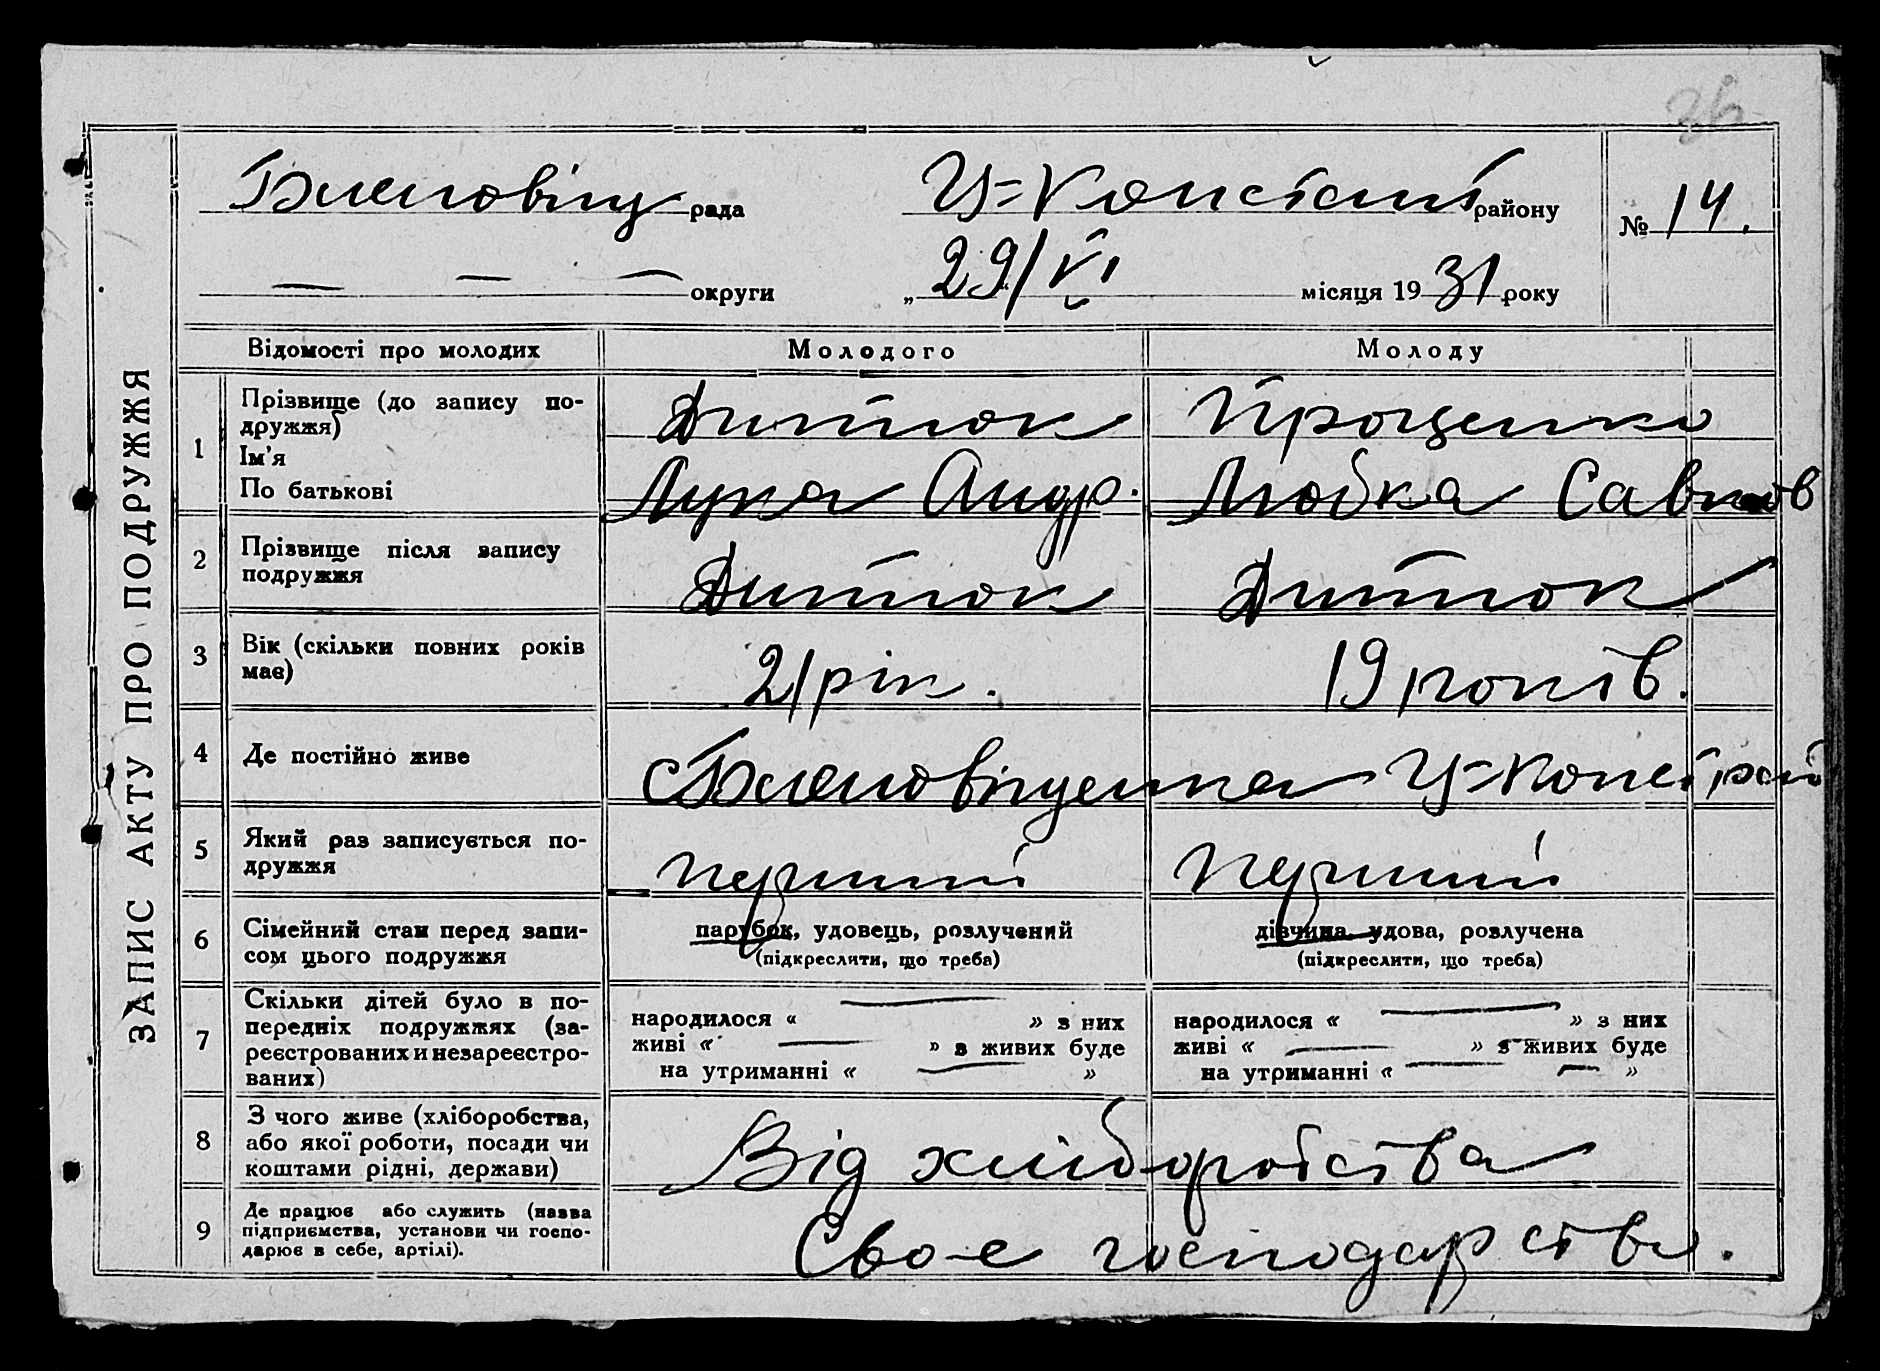 36
ЗАПИС АКТУ ПРО ПОДРУЖЖЯ
рада
Ц=Констант району
№ 14.
округи
„ 29/VI місяця 1931 року
Відомості про молодих
Молодого
Молоду
1
Прізвище (до запису по-
дружжя)
Ім'я
По батькові
Дитюк
Лука Андр.
Проценко
Любка Савков
2
Прізвище після запису
подружжя
Дитюк
Дитюк
3
Вік (скільки повних років
має)
21 рік.
19 років.
4
Де постійно живе
Ц=Конст рай
5
Який раз записується по-
дружжя
перший
перший
6
Сімейний стан перед запи-
сом цього подружжя
парубок, удовець, розлучений
(підкреслити, що треба)
дівчина, удова, розлучена
(підкреслити, що треба)
7
Скільки дітей було в по-
передніх подружжях (за-
реєстрованих и незареєстро-
ваних)
народилося « — » з них
живі « — » з живих буде
на утриманні « — »
народилося « — » з них
живі « — » з живих буде
на утриманні « — — »
8
З чого живе (хліборобства,
або якої роботи, посади чи
коштами рідні, держави)
Від хліборобства
9
Де працює або служить (назва
підприємства, установи чи госпо-
дарює в себе, артілі).
Своє господарство.